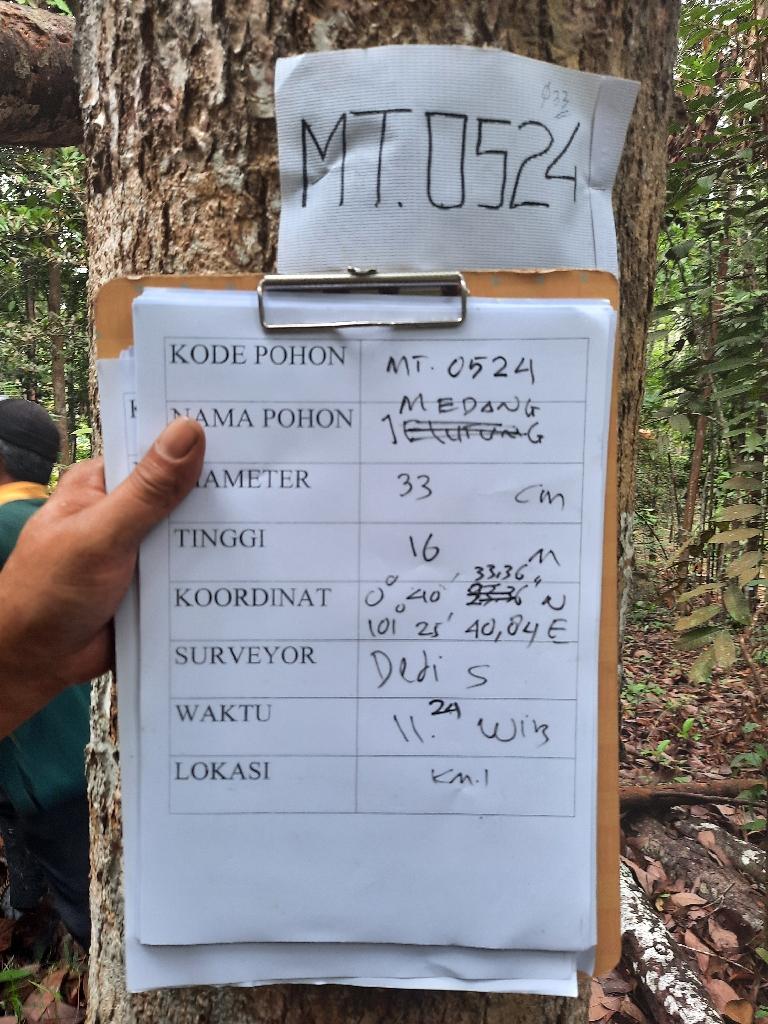 Ø33
MT.0524
KODE POHON MT. 0524
NAMA POHON MEDANG
DIAMETER 33 cm
TINGGI 16 M
KOORDINAT 0° 40' 33.36" N
101° 25' 40,84 E
SURVEYOR Dedi S
WAKTU 11.24 Wib
LOKASI Km.1